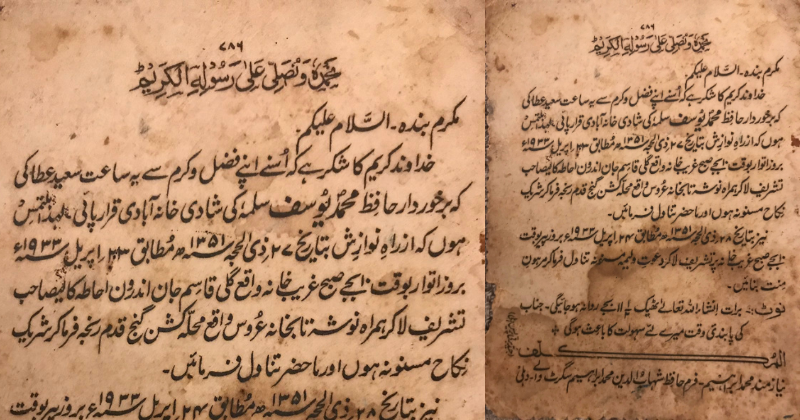 ۷۸۶
نحمدہ ونصلی علیٰ رسولہ الکریم
مکرم بندہ۔ السلام علیکم۔
خداوند کریم کا شکر ہے کہ اُسنے اپنے فضل وکرم سے یہ ساعت سعید عطا کی
کہ برخوردار حافظ محمد یوسف سلمہٗ کی شادی خانہ آبادی قرار پائی لہٰذا ملتمس
ہوں کہ ازراہِ نوازش بتاریخ ۲۷ ذی الحجہ ۱۳۵۱ھ مطابق ۲۳ اپریل ۱۹۳۳ء
بروز اتوار بوقت ۱۰ بجے صبح غریب خانہ واقع گلی قاسم جان اندرون احاطہ کالیصاحب
تشریف لاکر ہمراہ نوشہ تا بخانہ عروس واقع محلہ کشن گنج قدم رنجہ فرماکر شریک
نکاح مسنونہ ہوں اور ماحضر تناول فرمائیں۔
نیز بتاریخ ۲۸ ذی الحجہ ۱۳۵۱ھ مطابق ۲۴ اپریل ۱۹۳۳ء بروز پیر بوقت
۷۸۶
نحمدہ ونصلی علیٰ رسولہ الکریم
مکرم بندہ۔ السلام علیکم۔
خداوند کریم کا شکر ہے کہ اُسنے اپنے فضل وکرم سے یہ ساعت سعید عطا کی
کہ برخوردار حافظ محمد یوسف سلمہٗ کی شادی خانہ آبادی قرار پائی لہٰذا ملتمس
ہوں کہ ازراہِ نوازش بتاریخ ۲۷ ذی الحجہ ۱۳۵۱ھ مطابق ۲۳ اپریل ۱۹۳۳ء
بروز اتوار بوقت ۱۰ بجے صبح غریب خانہ واقع گلی قاسم جان اندرون احاطہ کالیصاحب
تشریف لاکر ہمراہ نوشہ تا بخانہ عروس واقع محلہ کشن گنج قدم رنجہ فرماکر شریک
نکاح مسنونہ ہوں اور ماحضر تناول فرمائیں۔
نیز بتاریخ ۲۸ ذی الحجہ ۱۳۵۱ھ مطابق ۲۴ اپریل ۱۹۳۳ء بروز پیر بوقت
۱۰ بجے صبح غریب خانہ پر تشریف لاکر دعوتِ ولیمہ مسنونہ تناول فرماکر مرہون
منت بنائیں۔
نوٹ:۔ برات انشاء اللہ تعالےٰ ٹھیک ۱۱ بجے روانہ ہوجائیگی۔ جناب
کی پابندی وقت میرے لئے سہولت کا باعث ہوگی
المکلف
نیازمند محمد ابراہیم۔ فرم حافظ شہاب الدین محمد ابراہیم سگرٹ والے دہلی